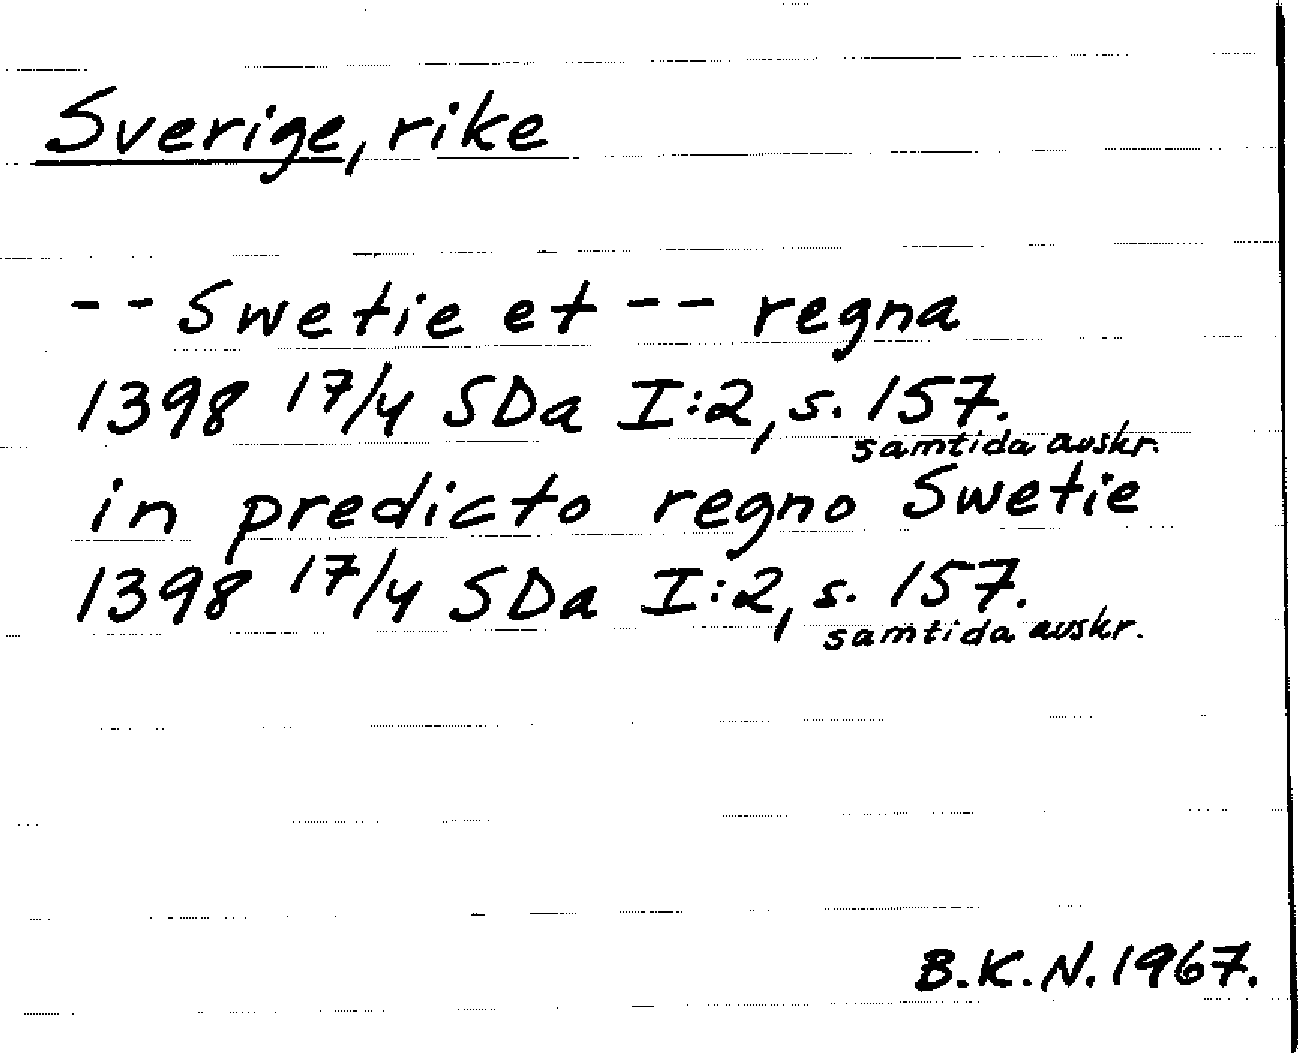 Sverige, rike
-- Swetie et -- regna
1398 17/4 SDa I:2, s. 157.
samtida avskr.
in predicto regno Swetie
1398 17/4 SDa I:2, s. 157.
samtida avskr.
B.K.N. 1967.